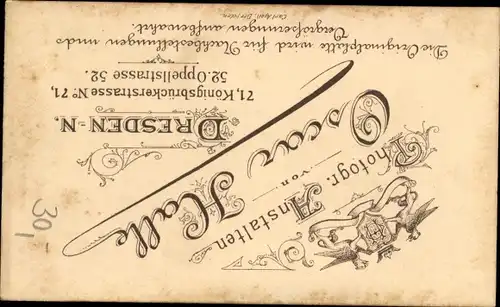 Photogr. Anstalten
von
Oscar Halle
DRESDEN-N.
71, Königsbrückerstrasse No 71,
52, Oppellstrasse 52.
Die Originalplatte wird für Nachbestellungen und
Vergrößerungen aufbewahrt.
301